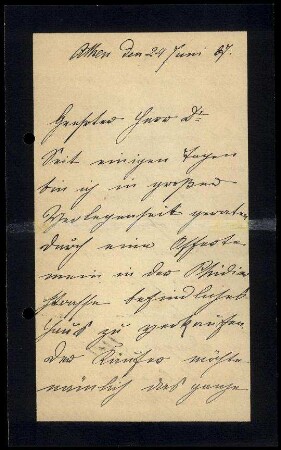 Athen den 24 Juni 87.
Geehrter Herr Dr
Seit einigen Tagen
bin ich in großer
Verlegenheit geraten
durch eine Offerte
mein in der Phidias
strasse befindliches
Haus zu verkaufen
Der Käufer möchte
nämlich das ganze